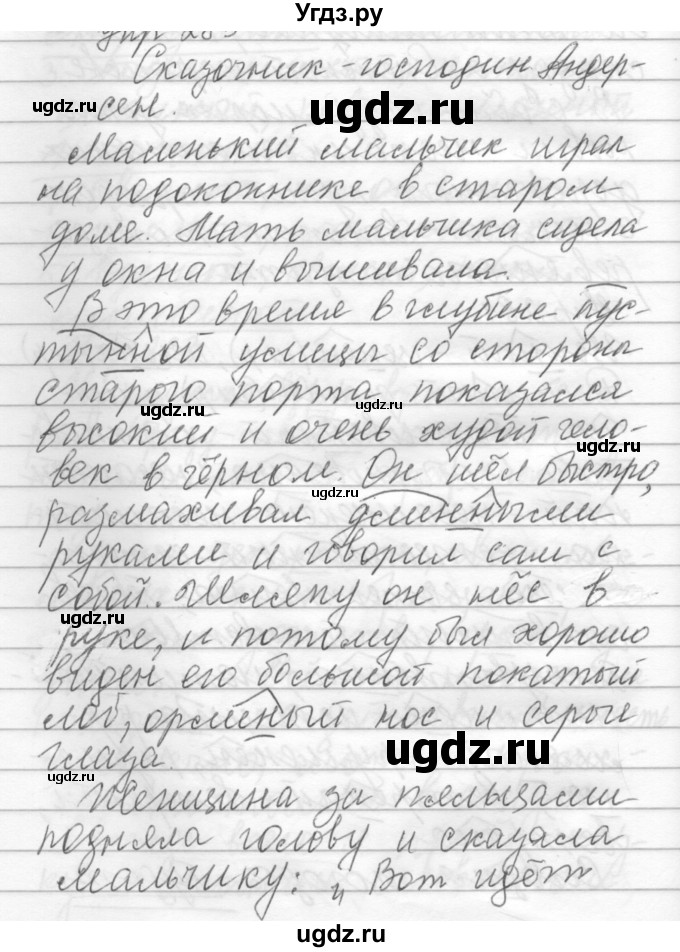 Угдз.ру
упр 283
Сказочник - господин Андер-
сен.
ugdz.ru
ugdz.ru
ugdz.ru
Маленький мальчик играл
на подоконнике в старом
доме. Мать мальчика сидела
у окна и вышивала.
В это время в глубине пус-
тынной улицы со стороны
старого порта показался
ugdz.ru
ugdz.ru
высокий и очень худой чело-
ugdz.ru
век в чёрном. Он шёл быстро,
ugdz.ru
размахивал длинными
руками и говорил сам с
собой. Шляпу он нёс в
ugdz.ru
руке, и потому был хорошо
виден его большой покатый
лоб, орлиный нос и серые
глаза.
ugdz.ru
ugdz.ru
Женщина за пяльцами
подняла голову и сказала
мальчику: „Вот идёт
ugdz.ru